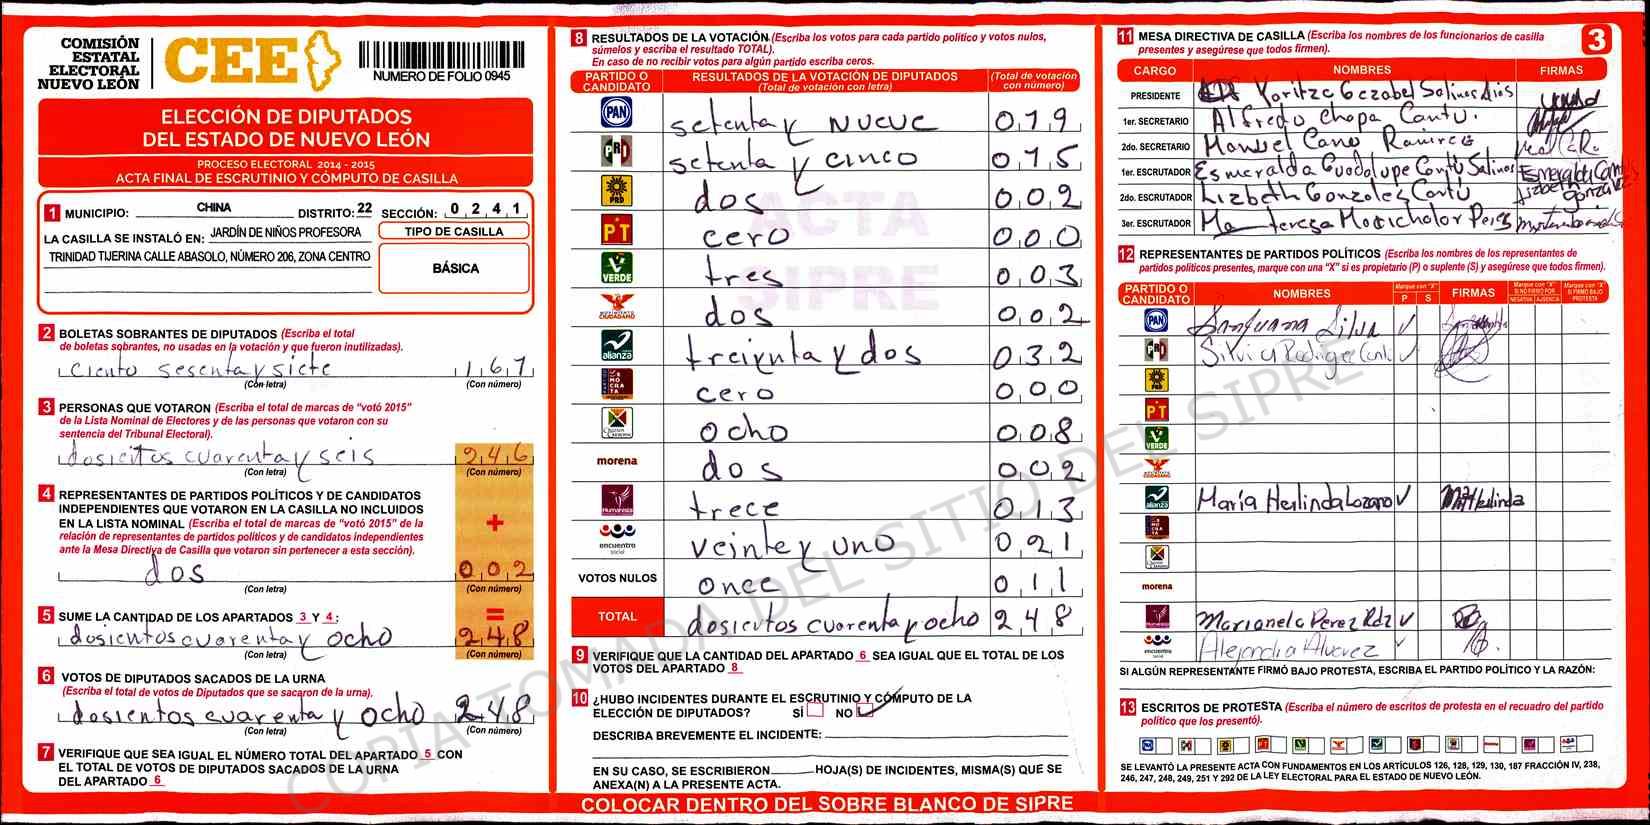 COMISIÓN
ESTATAL
ELECTORAL
NUEVO LEÓN
CEE
NUMERO DE FOLIO 0945
ELECCIÓN DE DIPUTADOS
DEL ESTADO DE NUEVO LEÓN
PROCESO ELECTORAL 2014 - 2015
ACTA FINAL DE ESCRUTINIO Y CÓMPUTO DE CASILLA
1 MUNICIPIO: CHINA DISTRITO: 22 SECCIÓN: 0 2 4 1
LA CASILLA SE INSTALÓ EN: JARDÍN DE NIÑOS PROFESORA
TRINIDAD TIJERINA CALLE ABASOLO, NÚMERO 206, ZONA CENTRO
TIPO DE CASILLA
BÁSICA
2 BOLETAS SOBRANTES DE DIPUTADOS (Escriba el total
de boletas sobrantes, no usadas en la votación y que fueron inutilizadas).
ciento sesenta y siete 1 6 7
(Con letra) (Con número)
3 PERSONAS QUE VOTARON (Escriba el total de marcas de "votó 2015"
de la Lista Nominal de Electores y de las personas que votaron con su
sentencia del Tribunal Electoral).
dosicitos cuarenta y seis 2 4 6
(Con letra) (Con número)
4 REPRESENTANTES DE PARTIDOS POLÍTICOS Y DE CANDIDATOS
INDEPENDIENTES QUE VOTARON EN LA CASILLA NO INCLUIDOS
EN LA LISTA NOMINAL (Escriba el total de marcas de "votó 2015" de la
relación de representantes de partidos políticos y de candidatos independientes
ante la Mesa Directiva de Casilla que votaron sin pertenecer a esta sección).
+
dos 0 0 2
(Con letra) (Con número)
=
5 SUME LA CANTIDAD DE LOS APARTADOS 3 Y 4:
dosientos cuarenta y ocho 2 4 8
(Con letra) (Con número)
6 VOTOS DE DIPUTADOS SACADOS DE LA URNA
(Escriba el total de votos de Diputados que se sacaron de la urna).
dosientos cuarenta y ocho 2 4 8
(Con letra) (Con número)
7 VERIFIQUE QUE SEA IGUAL EL NÚMERO TOTAL DEL APARTADO 5 CON
EL TOTAL DE VOTOS DE DIPUTADOS SACADOS DE LA URNA
DEL APARTADO 6
8 RESULTADOS DE LA VOTACIÓN (Escriba los votos para cada partido político y votos nulos,
súmelos y escriba el resultado TOTAL).
En caso de no recibir votos para algún partido escriba ceros.
PARTIDO O CANDIDATO RESULTADOS DE LA VOTACIÓN DE DIPUTADOS (Total de votación con letra) (Total de votación con número)
PAN setenta y nueve 0 7 9
PRI setenta y cinco 0 7 5
PRD dos 0 0 2
PT cero 0 0 0
VERDE tres 0 0 3
MOVIMIENTO CIUDADANO dos 0 0 2
alianza treiynta y dos 0 3 2
cero 0 0 0
ocho 0 0 8
morena dos 0 0 2
Humanista trece 0 1 3
encuentro social veinte y uno 0 2 1
VOTOS NULOS once 0 1 1
TOTAL dosientos cuarenta y ocho 2 4 8
ACTA
SIPRE
9 VERIFIQUE QUE LA CANTIDAD DEL APARTADO 6 SEA IGUAL QUE EL TOTAL DE LOS
VOTOS DEL APARTADO 8
10 ¿HUBO INCIDENTES DURANTE EL ESCRUTINIO Y CÓMPUTO DE LA
ELECCIÓN DE DIPUTADOS? SÍ NO
DESCRIBA BREVEMENTE EL INCIDENTE:
EN SU CASO, SE ESCRIBIERON HOJA(S) DE INCIDENTES, MISMA(S) QUE SE
ANEXA(N) A LA PRESENTE ACTA.
COLOCAR DENTRO DEL SOBRE BLANCO DE SIPRE
11 MESA DIRECTIVA DE CASILLA (Escriba los nombres de los funcionarios de casilla
presentes y asegúrese que todos firmen).
3
CARGO NOMBRES FIRMAS
PRESIDENTE Yaritza Gezabel Salinas
1er. SECRETARIO Alfredo Chapa Cantu.
2do. SECRETARIO Manuel Cano Ramirez
1er. ESCRUTADOR Esmeralda Guadalupe Cantú Salinas Esmeralda Cantu
2do. ESCRUTADOR Lizbeth Gonzalez Cantú Lizbeth Gonzalez
3er. ESCRUTADOR Ma Teresa
12 REPRESENTANTES DE PARTIDOS POLÍTICOS (Escriba los nombres de los representantes de
partidos políticos presentes, marque con una "X" si es propietario (P) o suplente (S) y asegúrese que todos firmen).
PARTIDO O CANDIDATO NOMBRES Marque con "X" P S FIRMAS Marque con "X" SI NO FIRMÓ POR NEGATIVA AUSENCIA Marque con "X" SI FIRMÓ BAJO PROTESTA
PAN Sanjuana Silva
PRI Silvia Rodriguez Cantu
PRD
PT
VERDE
alianza María Herlinda Lozano Ma Herlinda
morena
Humanista Marianela Perez Rdz
encuentro social Alejandra Alvarez
SI ALGÚN REPRESENTANTE FIRMÓ BAJO PROTESTA, ESCRIBA EL PARTIDO POLÍTICO Y LA RAZÓN:
13 ESCRITOS DE PROTESTA (Escriba el número de escritos de protesta en el recuadro del partido
político que los presentó).
SE LEVANTÓ LA PRESENTE ACTA CON FUNDAMENTOS EN LOS ARTÍCULOS 126, 128, 129, 130, 187 FRACCIÓN IV, 238,
246, 247, 248, 249, 251 Y 292 DE LA LEY ELECTORAL PARA EL ESTADO DE NUEVO LEÓN.
COPIA TOMADA DEL SITIO DEL SIPRE